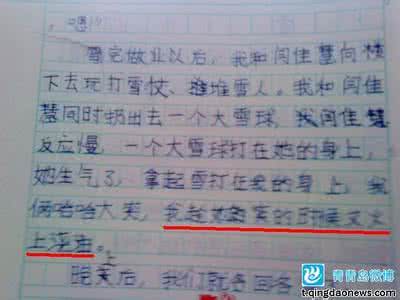 写完做业以后，我和闫佳慧向楼
下去玩打雪仗、堆雪人。我和闫佳
慧同时扔出去一个大雪球，闫佳慧
反应慢，一个大雪球打在她的身上，
她生气了，拿起雪打在我的身上，我
俩哈哈大笑，我趁她笑的时候又
上
晚笑后，我们就各回各
青青岛微博
t.qingdaonews.com